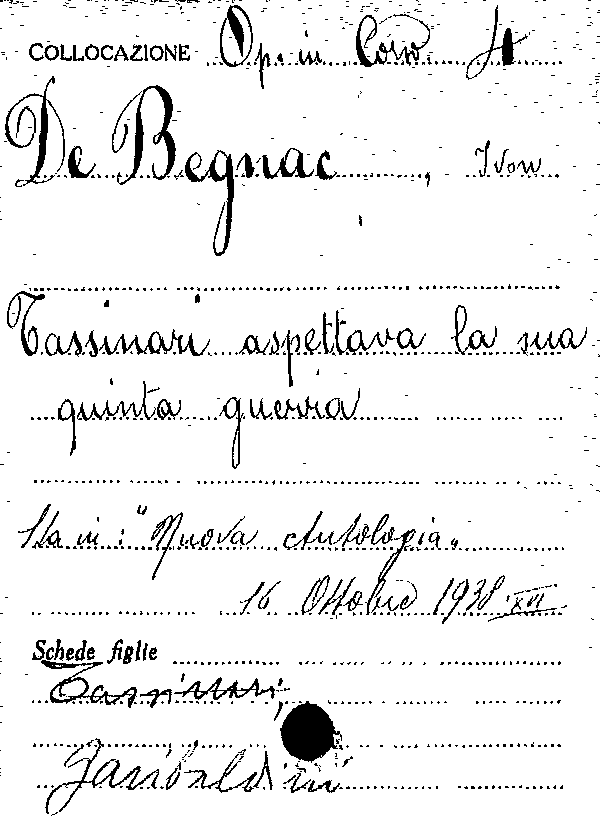 COLLOCAZIONE Op. in Corso It
De Begnac, Ivon
Tassinari aspettava la sua
quinta guerra
Sta in: "Nuova Antologia„
16 Ottobre 1938 XVI
Schede figlie
Tassinari,
Garibaldini